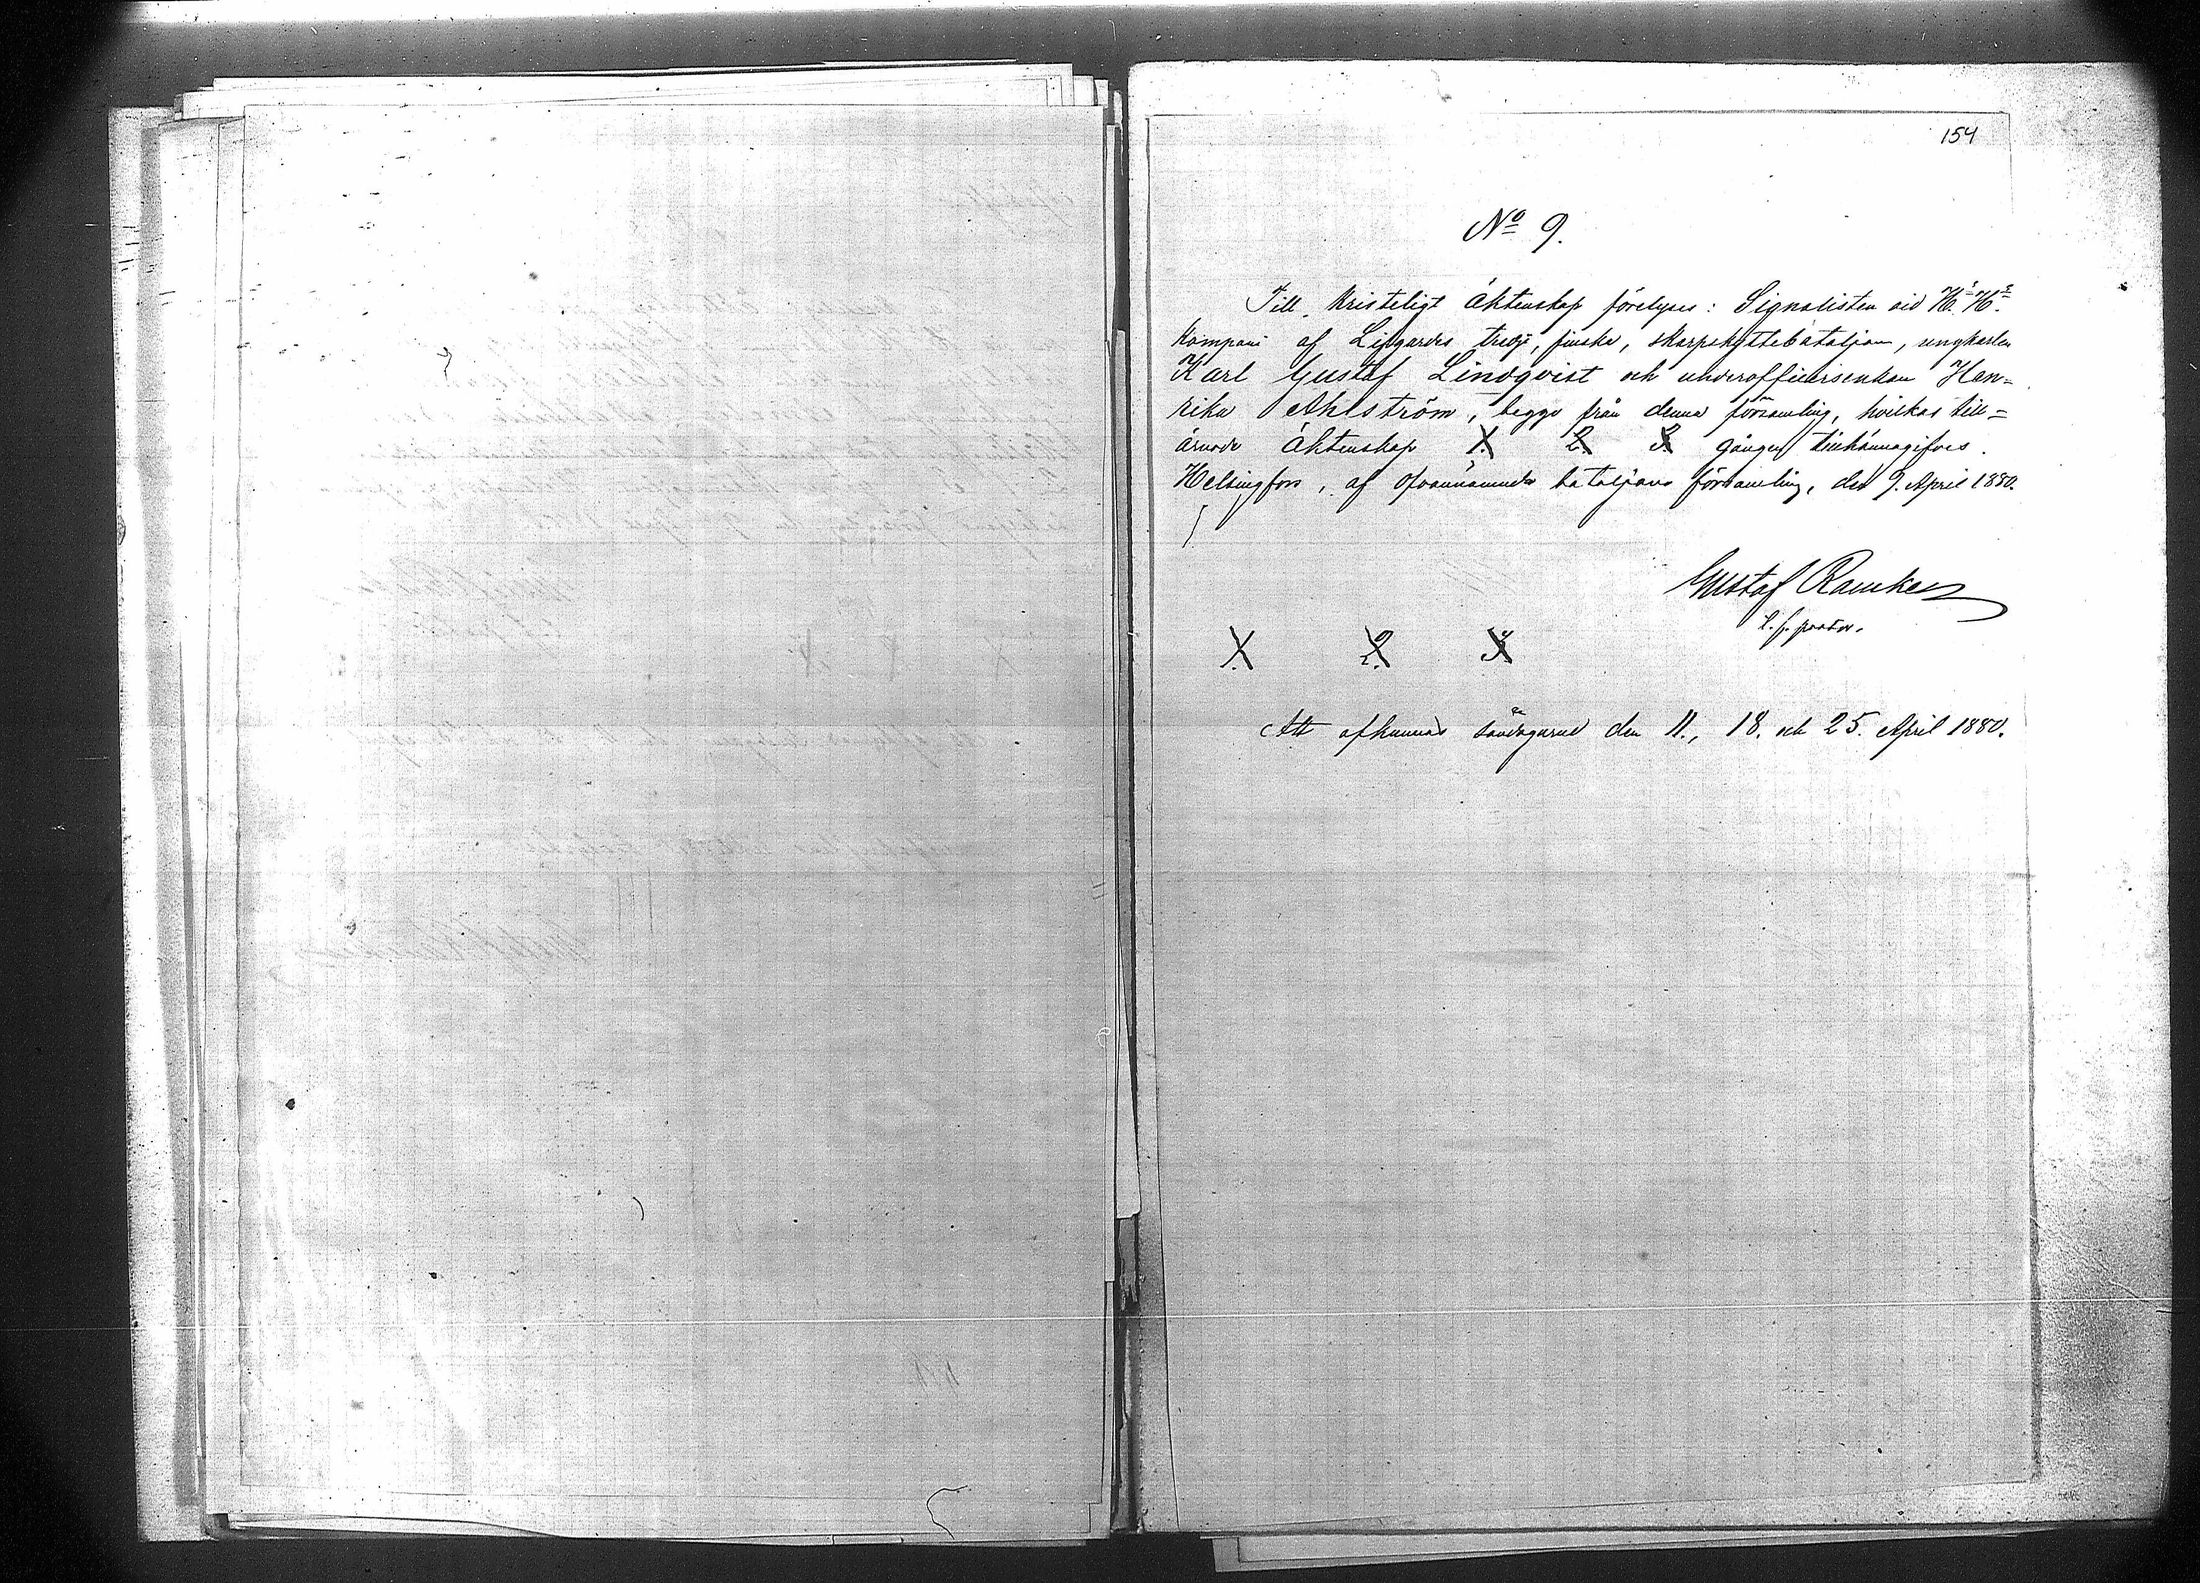 154
No 9.
Till kristeligt äktenskap förelyses: Signalisten vid H. H.
kompani af Lifgardes tredje, finska, skarpskyttebataljon, ungkarlen
Karl Gustaf Lindqvist och underofficersenkan Hen=
rika Ahlström, begge från denna församling, hvilkas till=
ärnade äktenskap 1. 2. 3. gången tillkännagifves.
Helsingfors, af ofvannämnde bataljons församling, den 9. April 1880.
Gustaf Rancken
t. f. pastor.
1. 2. 3.
Att afkunnas söndagarne den 11., 18. och 25. April 1880.